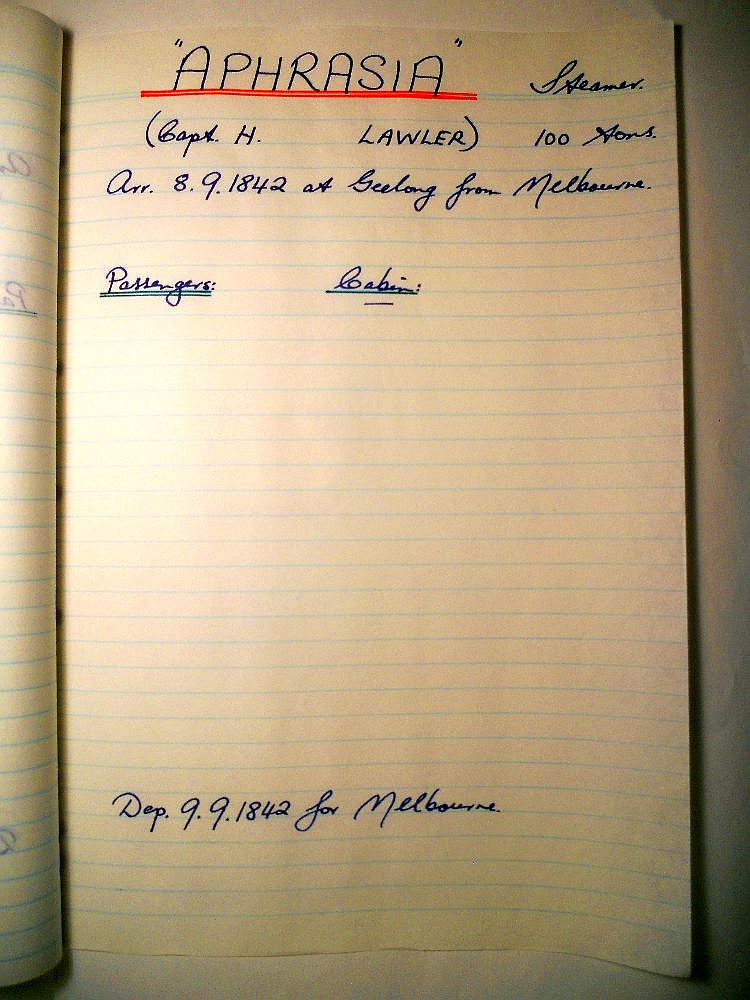 "APHRASIA" Steamer.
(Capt. H. LAWLER) 100 Tons.
Arr. 8.9.1842 at Geelong from Melbourne.
Passengers: Cabin:
Dep. 9.9.1842 for Melbourne.